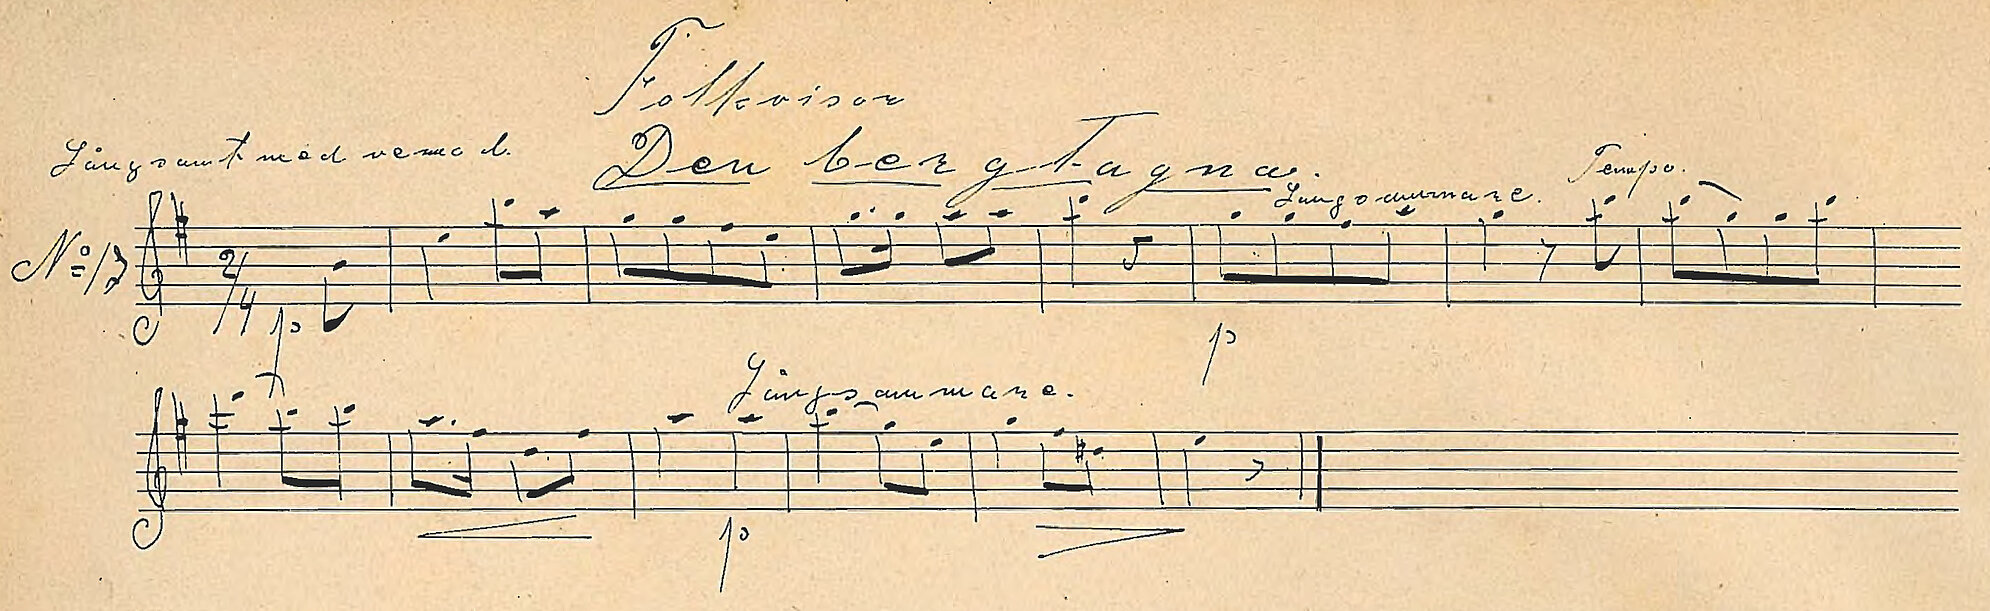 Folkvisor
Långsamt med vemod.
Den bergtagna.
Långsammare.
Tempo.
No 17
2/4
p
p
Långsammare.
p